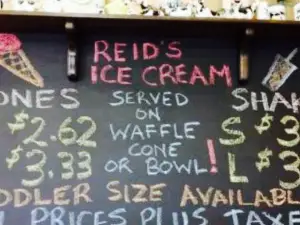 REID'S
ICE CREAM
ONES
SERVED
ON
WAFFLE
CONE
OR BOWL!
$2.62
$3.33
SHA
S $3
L $3
ODDLER SIZE AVAILABL
L PRICES PLUS TAXE